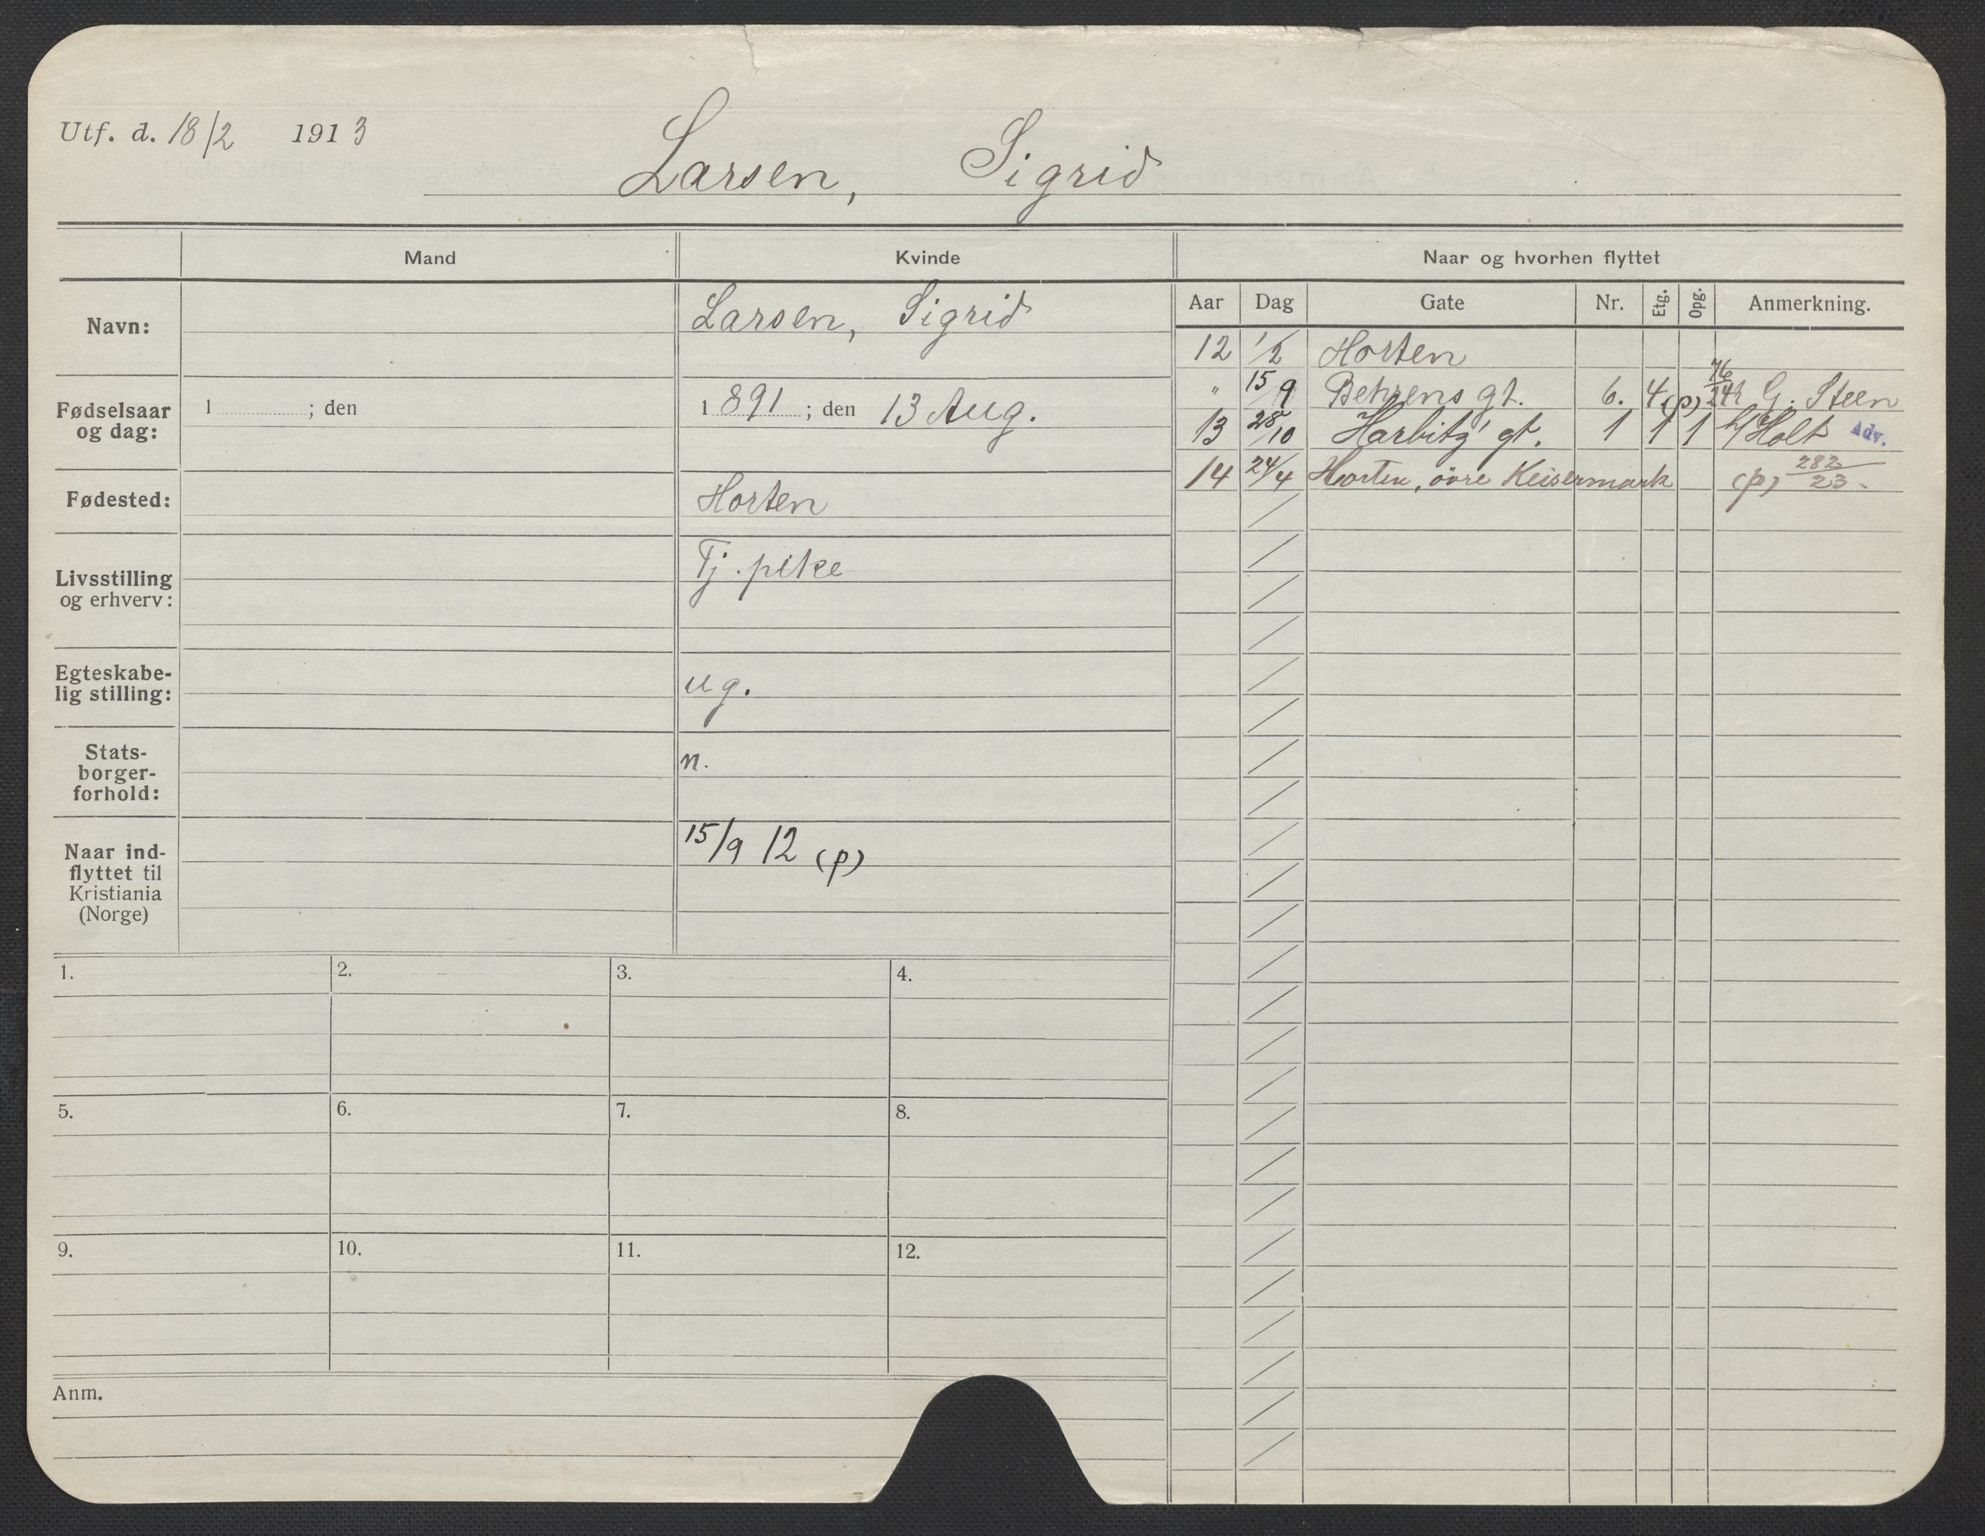 Utf. d. 18/2 1913
Larsen, Sigrid
Mand Kvinde Naar og hvorhen flyttet
Navn: Larsen, Sigrid
Fødselsaar og dag: 1 ; den 1891 ; den 13 Aug.
Fødested: Horten
Livsstilling og erhverv: Tj. pike
Egteskabe-
lig stilling: ug.
Stats-
borger-
forhold: n.
Naar ind-
flyttet til
Kristiania
(Norge) 15/9 12 (p)
Aar Dag Gate Nr. Etg. Opg. Anmerkning.
12 1/2 Horten
" 15/9 Behrens gt. 6. 4 (p) G. Steen
13 28/10 Harbitz' gt. 1 1 1 Holt Adv.
14 24/4 Horten, övre Keisermark (p) 282/23
1. 2. 3. 4.
5. 6. 7. 8.
9. 10. 11. 12.
Anm.